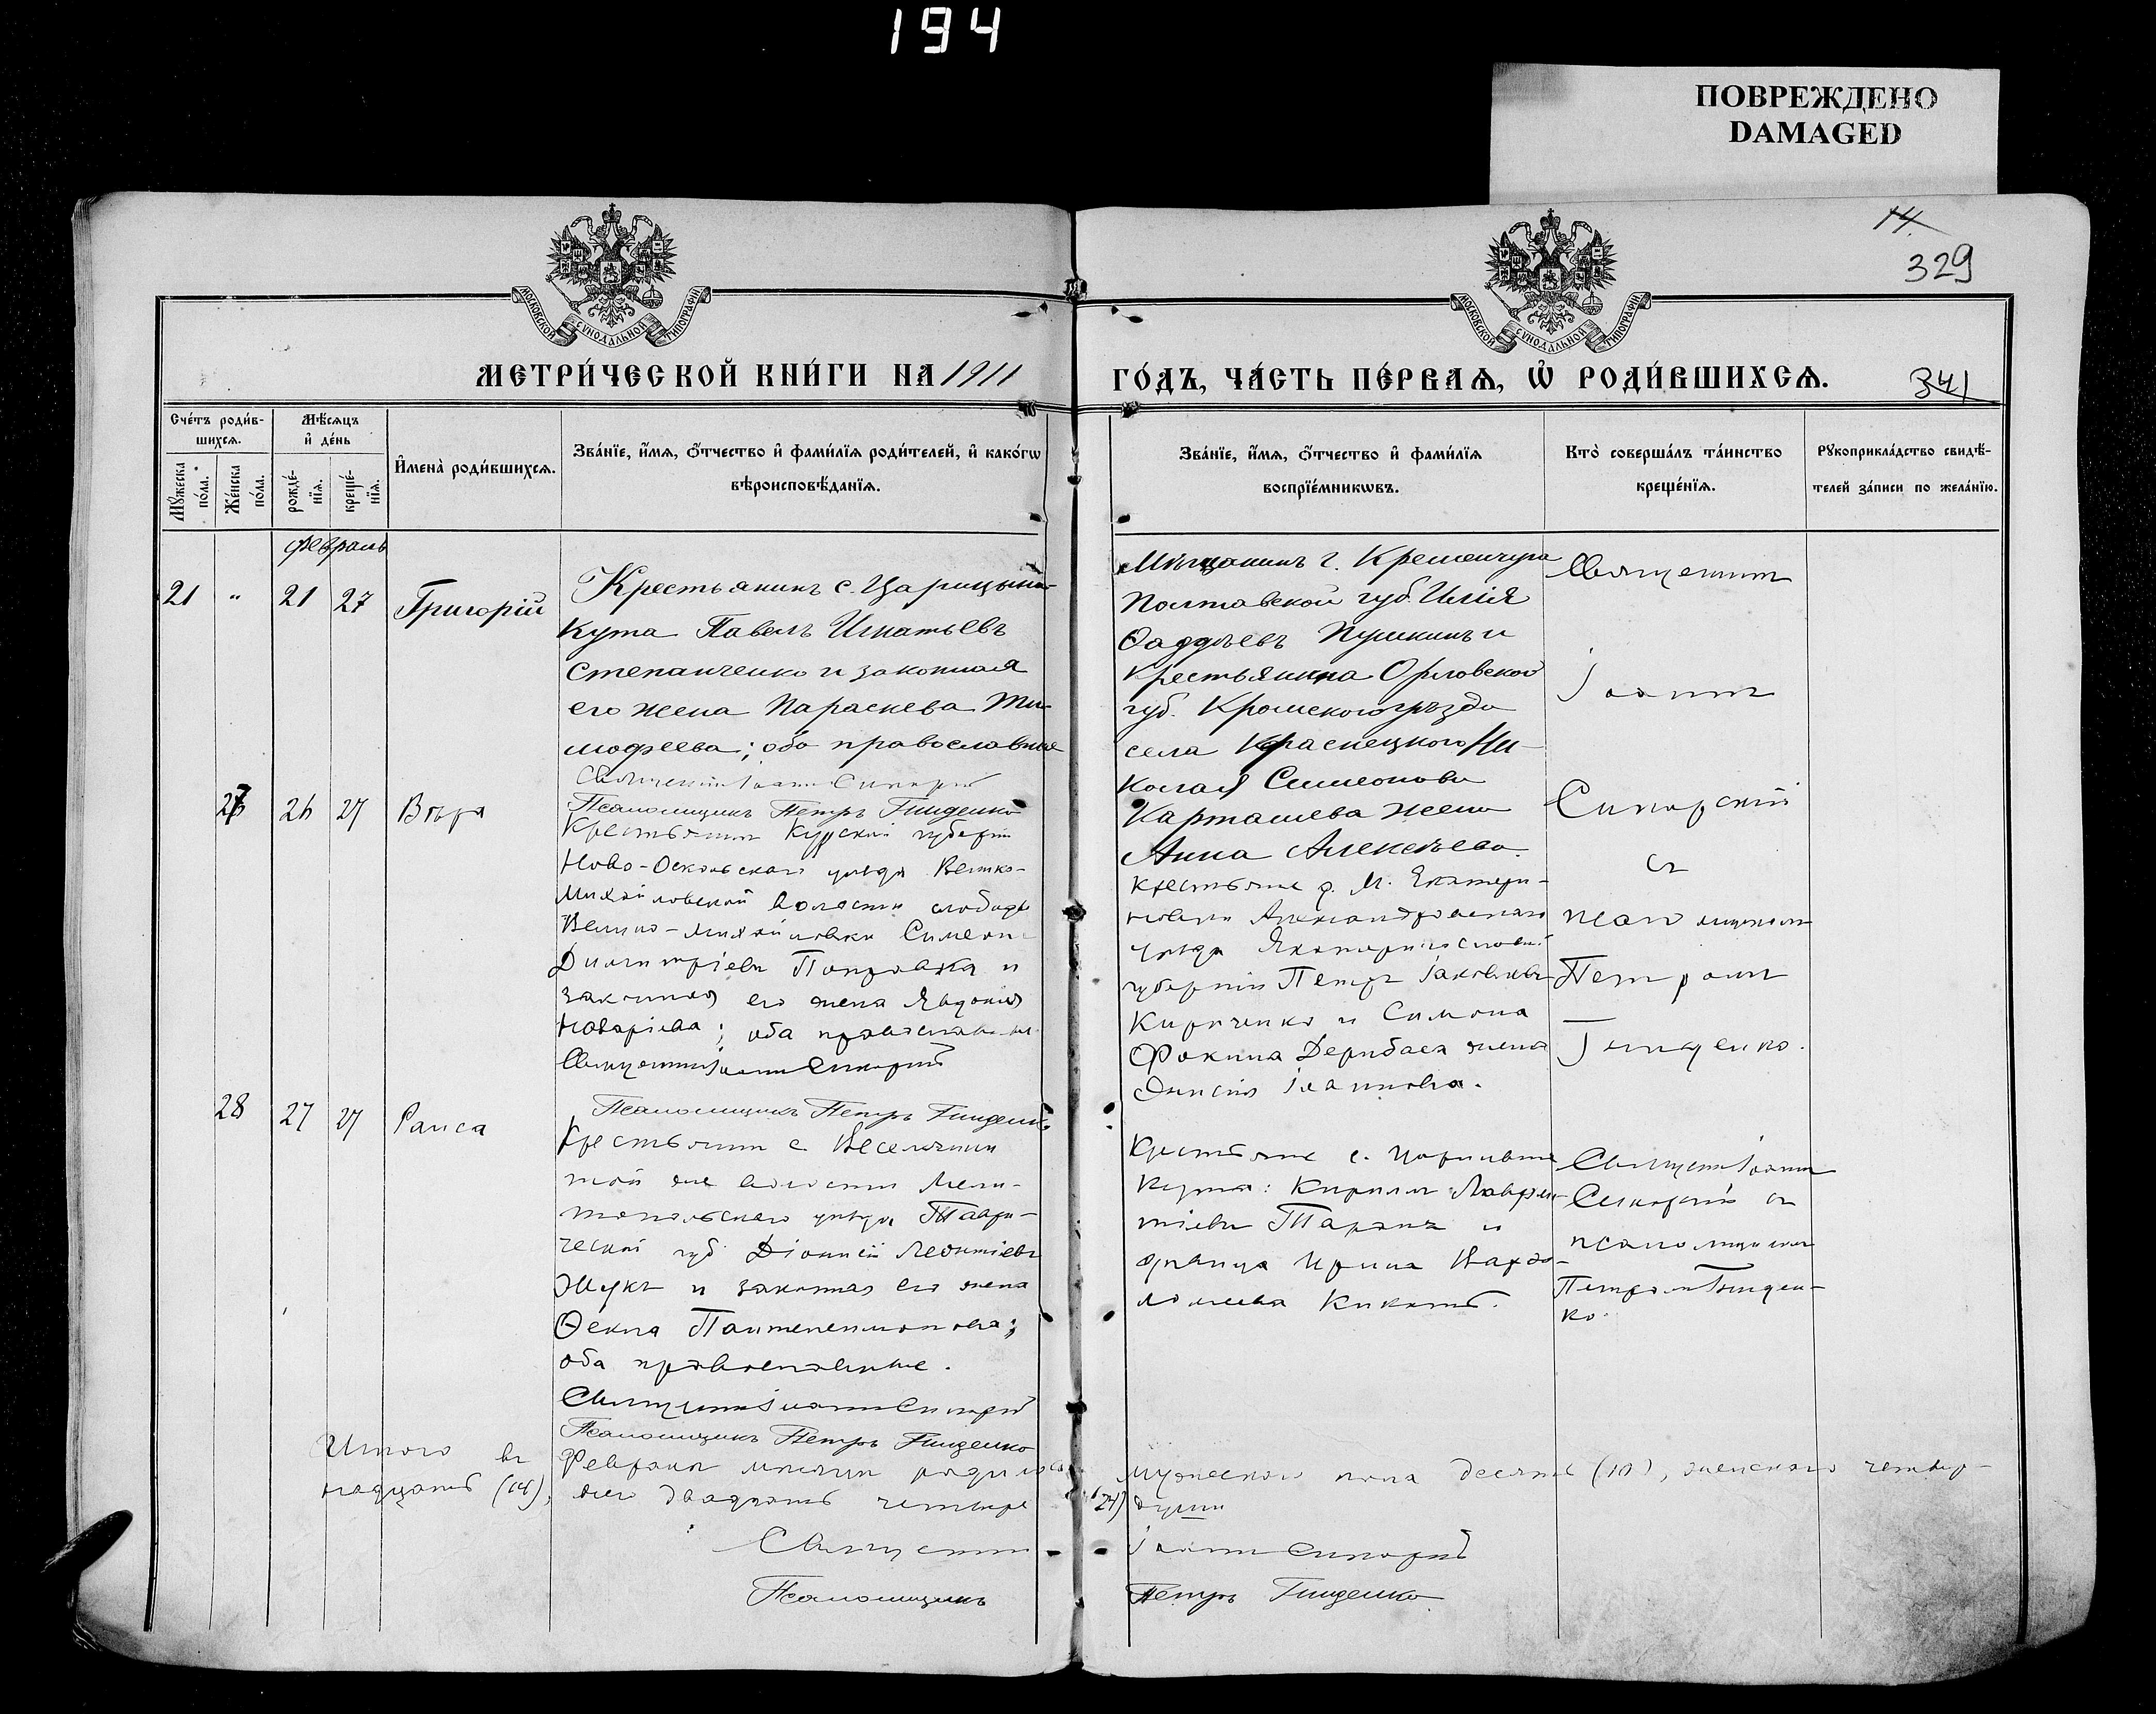 194
ПОВРЕЖДЕНО
DAMAGED
14.
329
МОСКОВСКОЙ СѴНОДАЛЬНОЙ ТИПОГРАФІИ
МОСКОВСКОЙ СѴНОДАЛЬНОЙ ТИПОГРАФІИ
МЕТРИ́ЧЕСКОЙ КНИ́ГИ НА 1911
ГО́ДЪ, ЧА́СТЬ ПЕ́РВАѦ, Ѡ҆ РОДИ́ВШИХСѦ.
341
Сче́тъ роди́в-
шихсѧ.
Мѣ́сѧцъ
и҆ де́нь
Мꙋ́жеска
по́ла.
Же́нска
по́ла.
рожде́-
нїѧ.
креще́-
нїѧ.
И҆мена̀ роди́вшихсѧ.
Зва́нїе, и҆́мѧ, ѻ҆́тчество и҆ фами́лїѧ роди́телей, и҆ како́гѡ
вѣроисповѣ́данїѧ.
Зва́нїе, и҆́мѧ, ѻ҆́тчество и҆ фами́лїѧ
воспрїе́мникѡвъ.
Кто̀ соверша́лъ та́инство
креще́нїѧ.
Рꙋкоприкла́дство свидѣ́-
телей за́писи по жела́нїю.
февраль
21 " 21 27 Григорій
Крестьянинъ с. Царицына
Кута Павелъ Игнатьевъ
Степанченко и законная
его жена Параскева Ти-
мофеева; оба православные
Священникъ Іоаннъ Сикорскій
Псаломщикъ Петръ Гниденко
Мѣщанинъ г. Кременчуга
Полтавской губ. Илія
Ѳаддѣевъ Пушкинъ и
Крестьянина Орловской
губ. Кромского уѣзда
села Краснецкого Ни-
колая Симеонова
Карташева жена
Анна Алексѣева.
Священник
Іоанн
Сикорскій
съ
псаломщиком
Петром
Гниденко.
27 26 27 Вѣра
Крестьянин Курской губерніи
Ново-Оскольскаго уѣзда Велико-
Михайловской волости слободы
Велико-Михайловки Симеон
Димитріевъ Поправка и
законная его жена Явдокія
; оба православные
Священник Іоанн Сикорскій
Псаломщикъ Петръ Гниденко
Крестьяне д. М. Екатери-
новки Александровскаго
уѣзда Екатеринославской
губерніи Петръ Іаковлевъ
Кириченко и Симона
Фокина Дерибаса жена
Іоаннова.
28 27 27 Раиса
Крестьянин с. Веселаго
той же волости Мели-
топольскаго уѣзда Таври-
ческой губ. Діонисій Леонтіевъ
Жукъ и законная его жена
Ѳекла Пантелеимонова;
оба православные.
Священник Іоанн Сикорскій
Псаломщикъ Петръ Гниденко
Крестьяне с. Царицына
Кута: Кирилл Лаврен-
тіевъ Таранъ и
дѣвица Ирина Варѳо-
ломеева Кикоть.
Священ. Іоанн
Сикорскій съ
псаломщиком
Петром Гниден-
ко.
Итого въ Феврале месяце родилось мужескаго пола десять (10), женскаго четыр-
надцать (14), всего двадцать четыре (24) души
Священник Іоанн Сикорскій
Псаломщикъ Петръ Гниденко.